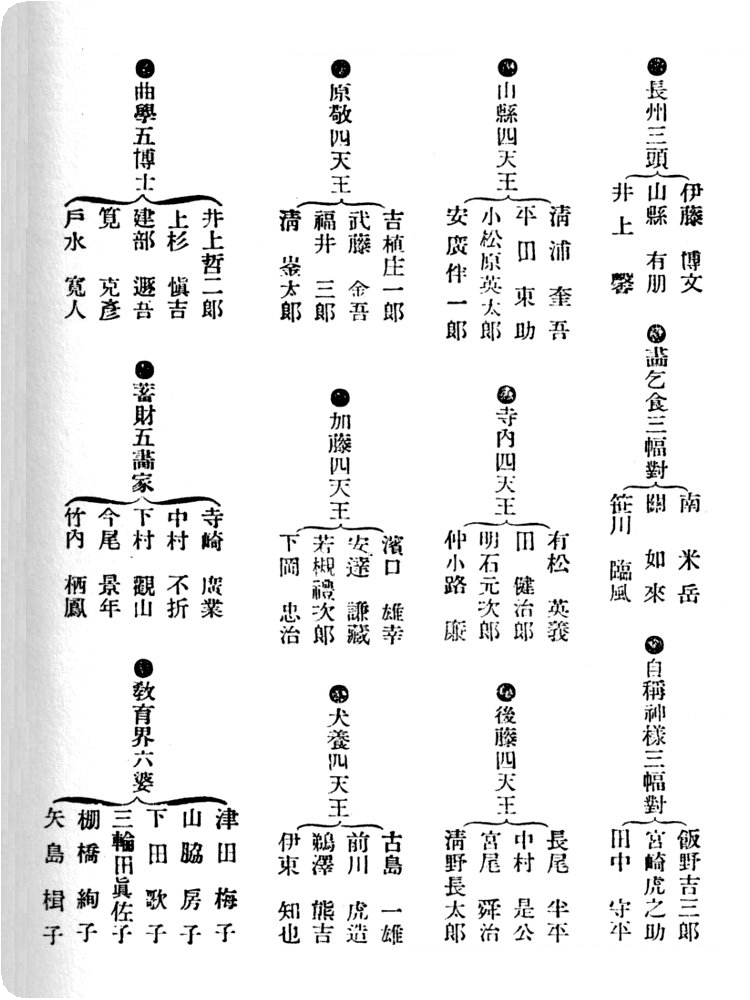 ●長州三頭
伊藤博文
山縣有朋
井上馨
●畵乞食三幅對
南米岳
關如來
笹川臨風
●自稱神樣三幅對
飯野吉三郎
宮崎虎之助
田中守平
●山縣四天王
淸浦奎吾
平田東助
小松原英太郎
安廣伴一郎
●寺內四天王
有松英義
田健治郎
明石元次郎
仲小路廉
●後藤四天王
長尾半平
中村是公
宮尾舜治
淸野長太郎
●原敬四天王
吉植庄一郎
武藤金吾
福井三郎
淸崟太郎
●加藤四天王
濱口雄幸
安達謙藏
若槻禮次郎
下岡忠治
●犬養四天王
古島一雄
前川虎造
鵜澤熊吉
伊東知也
●曲學五博士
井上哲二郎
上杉愼吉
建部遯吾
筧克彥
戶水寬人
●蓄財五畵家
寺崎廣業
中村不折
下村觀山
今尾景年
竹內栖鳳
●敎育界六婆
津田梅子
山脇房子
下田歌子
三輪田眞佐子
棚橋絢子
矢島楫子